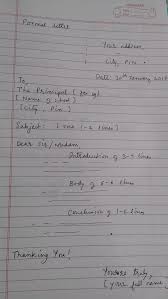 Formal letter
Your address,
City, Pin
Date: 20th January, 2018
To,
The Principal
[Name of school]
[City, Pin]
Subject: [ one 1-2 lines ]
Dear Sir/Madam
Introduction of 3-5 lines
Body of 5-6 lines
Conclusion of 1-5 lines
Thanking You!
Yours truly,
[your full name]